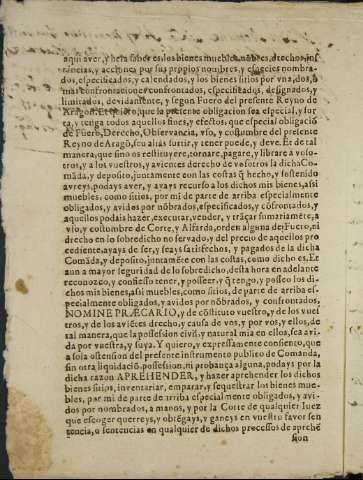 aqui aver, y hera saber es los bienes muebles, nõbres, drechos, ins
tancias, y acciones por sus propios nombres, y especies nombra-
dos, especificados, y calendados, y los bienes sitios por vna, dos, ò
mas confrontaciones confrontados, especificados, designados, y
limitados, devidamente, y segun Fuero del presente Reyno de
Aragon. Et quiero, que la presente obligacion sea especial, y sur
ta, y tenga todos aquellos fines, y efectos que especial obligaciõ
de Fuero, Derecho, Observancia, vso, y costumbre del presente
Reyno de Aragõ, seu aliàs surtir, y tener puede, y deve. Et de tal
manera, que sino os restituyere, tornare, pagare, y librare a voso-
tros, a los vuestros, y avientes derecho de vosotros la dicha Co-
mãda, y deposito, juntamente con las costas q̃ hecho, y sostenido
avreys, podays aver, y ayays recurso a los dichos mis bienes, assi
muebles, como sitios, por mi de parte de arriba especialmente
obligados, y avidos por nõbrados, especificados, y cõfrontados, y
aquellos podais hazer, executar, vender, y trãçar sumariamẽte, a
vso, y costumbre de Corte, y Alfarda, orden alguna de Fuero, ni
drecho en lo sobredicho no servado, y del precio de aquellos pro
cediente, ayays de ser, y seays satisfechos, y pagados de la dicha
Comãda, y deposito, juntamẽte con las costas, como dicho es. Et
aun a mayor seguridad de lo sobredicho, desta hora en adelante
reconozco, y confiesso tener, y posseer, q̃ tengo, y posseo los di-
chos mis bienes, assi muebles, como sitios, de parte de arriba es-
pecialmente obligados, y avidos por nõbrados, y confrontados,
NOMINE PRÆCARIO, y de cõstituto vuestro, y de los vues-
tros, y de los aviẽtes drecho, y causa de vos, y por vos, y ellos, de
tal manera, que la possession civil, y natural mia en ellos, sea avi-
da por vuestra, y suya. Y quiero, y expressamente consiento, que
a sola ostension del presente instrumento publico de Comanda,
sin otra liquidaciõ, possession, ni probança alguna, podays por la
dicha razon APREHENDER, y hazer aprehender los dichos
bienes sitios, inventariar, emparar, y sequestrar los bienes mue-
bles, por mi de parte de arriba especialmente obligados, y avi-
dos por nombrados, a manos, y por la Corte de qualquier Iuez
que escoger querreys, y obtẽgays, y ganeys en vuestro favor sen
tencia, o sentencias en qualquier de dichos processos de aprehẽ
sion